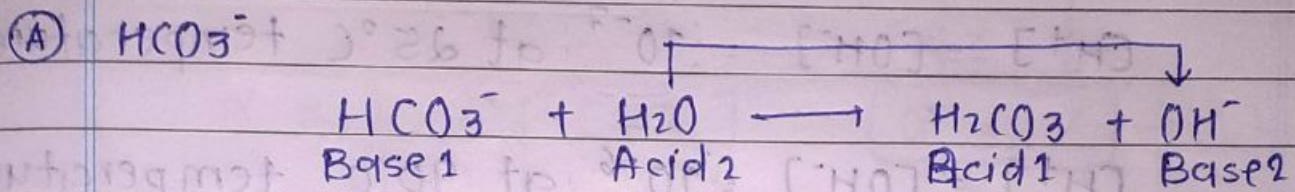 Ⓐ HCO3⁻
HCO3⁻ + H2O ⟶ H2CO3 + OH⁻
Base1 Acid2 Acid1 Base2